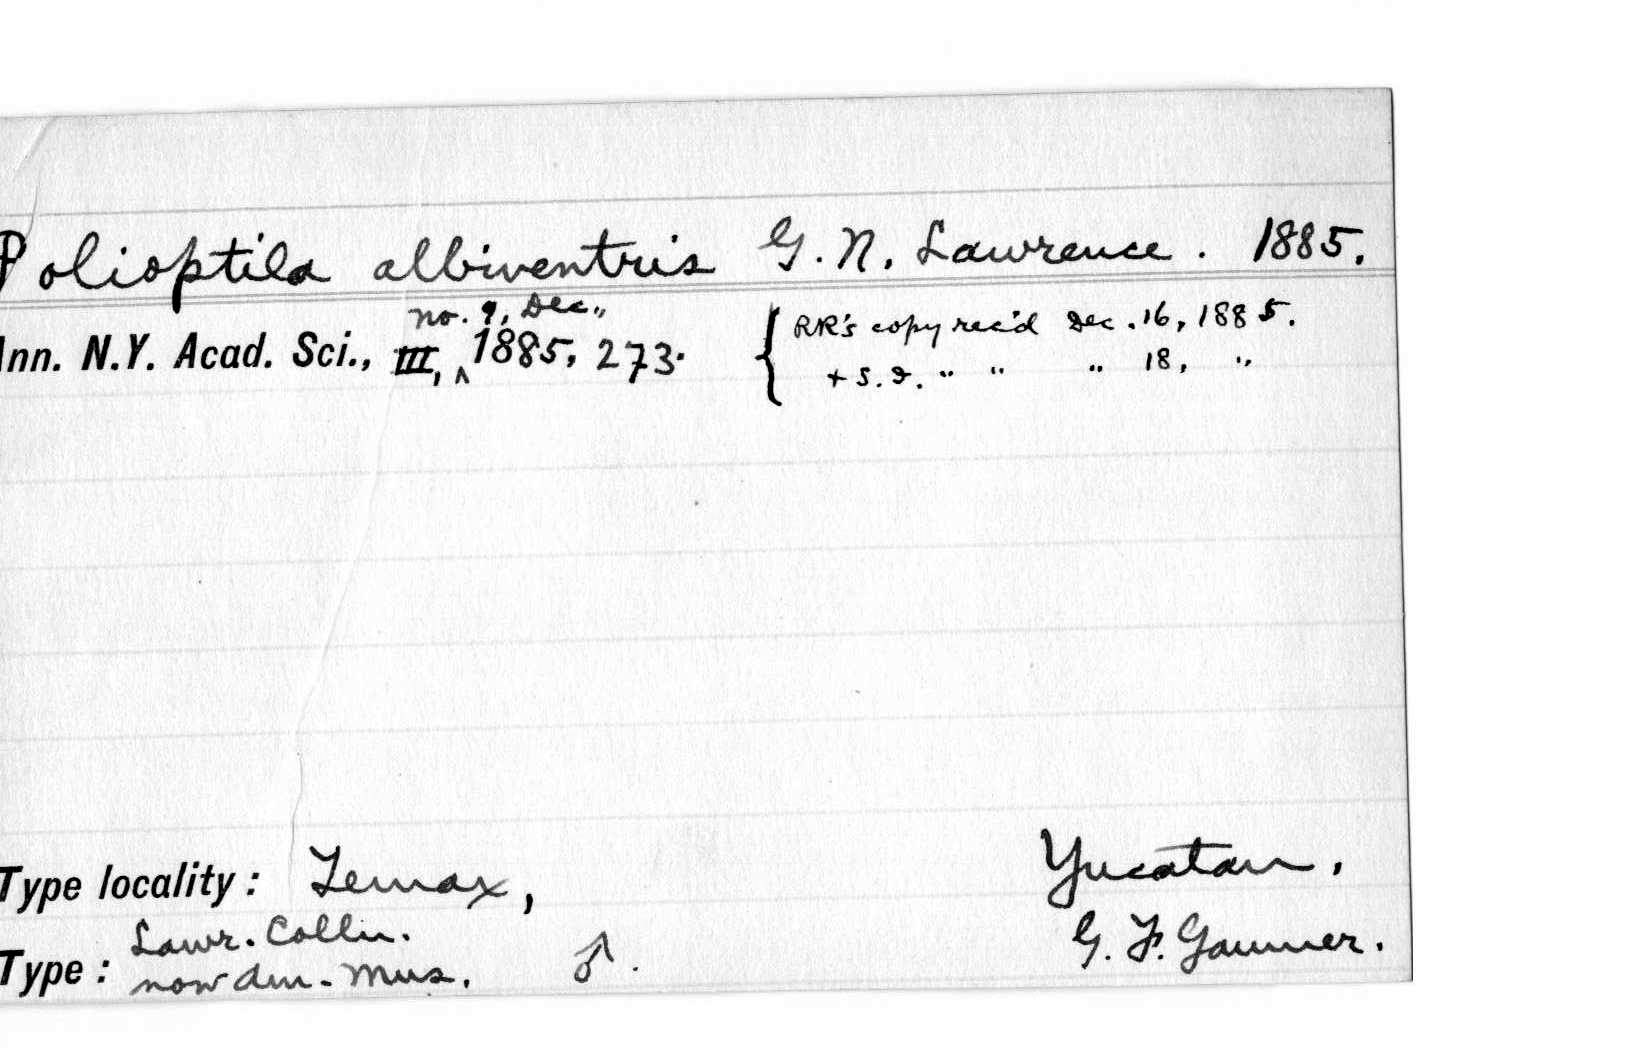 Polioptila albiventris G. N. Lawrence. 1885.
no. 9, Dec.,
Ann. N.Y. Acad. Sci., III, ^ 1885, 273. { RR's copy rec'd Dec. 16, 1885.
+ S.I. " " " 18, "
Type locality: Temax, Yucatan,
Lawr. Colln. G. F. Gaumer.
Type: now Am. Mus. ♂.